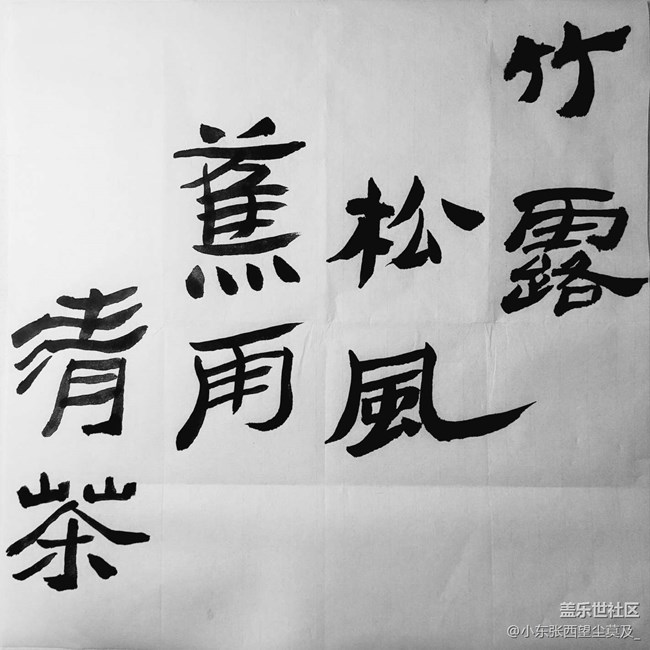 竹露
松風
蕉雨
清茶
盖乐世社区
@小东张西望尘莫及_